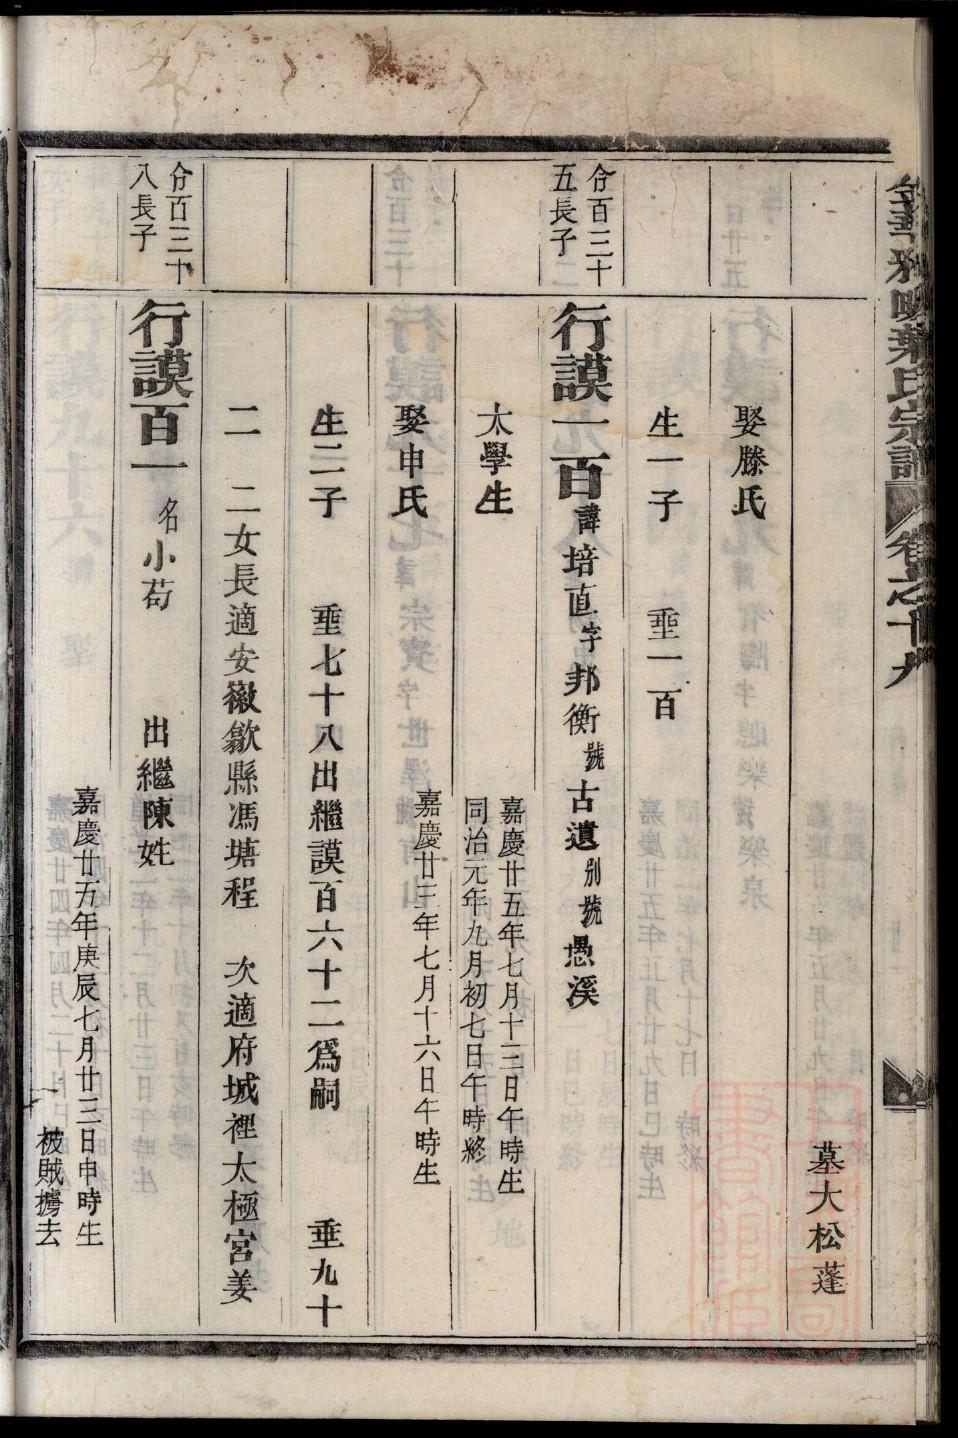 墓大松蓬
娶滕氏
生一子　垂一百
仝百三十
五長子
行謨一百諱培直字邦衡號古遺別號愚溪
太學生
嘉慶廿五年七月十三日午時生
同治元年九月初七日午時終
娶申氏
嘉慶廿三年七月十六日午時生
生二子　垂七十八出繼謨百六十二為嗣　垂九十
二　二女長適安徽歙縣馮塘程　次適府城裡太極宮姜
仝百三十
八長子
行謨百一　名小苟　出繼陳姓
嘉慶廿五年庚辰七月廿三日申時生
被賊擄去
葉氏宗譜　卷之十九